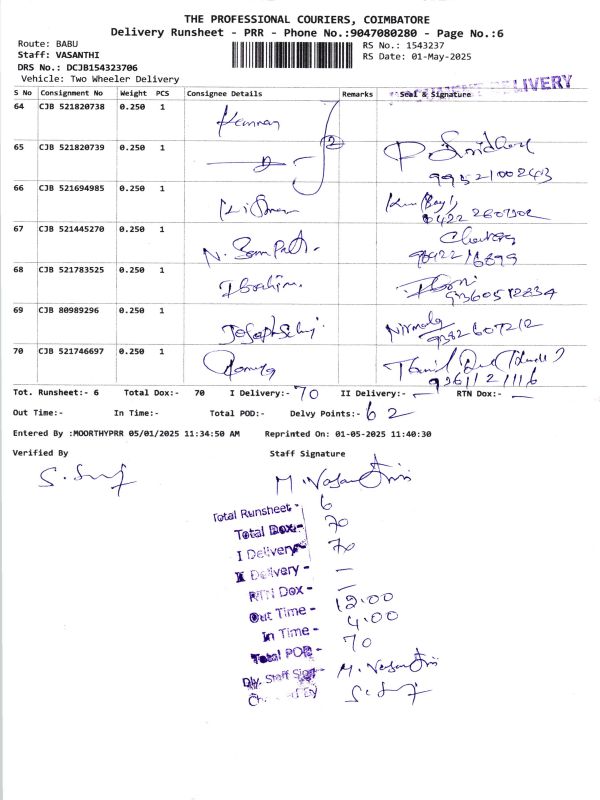 THE PROFESSIONAL COURIERS, COIMBATORE
Delivery Runsheet - PRR - Phone No.:9047080280 - Page No.:6
Route: BABU
RS No.: 1543237
Staff: VASANTHI
RS Date: 01-May-2025
DRS No.: DCJB154323706
Vehicle: Two Wheeler Delivery
DELIVERY
S No Consignment No Weight PCS Consignee Details Remarks Seal & Signature
64 CJB 521820738 0.250 1 Kannan
65 CJB 521820739 0.250 1 2 P. Sridhar
66 CJB 521694985 0.250 1
67 CJB 521445270 0.250 1 N. Sampath.
68 CJB 521783525 0.250 1 Ibrahim. 9360512834
69 CJB 80989296 0.250 1 Nirmala 9382607212
70 CJB 521746697 0.250 1
Tot. Runsheet:- 6 Total Dox:- 70 I Delivery:- 70 II Delivery:- — RTN Dox:- —
Out Time:- In Time:- Total POD:- Delvy Points:- 62
Entered By :MOORTHYPRR 05/01/2025 11:34:50 AM Reprinted On: 01-05-2025 11:40:30
Verified By Staff Signature
M. Vasanthi
Total Runsheet - 6
Total Dox:- 70
I Delivery - 70
II Delivery - —
RTN Dox - —
Out Time - 12.00
In Time - 4.00
Total POD - 70
Dly. Staff Sign - M. Vasanthi